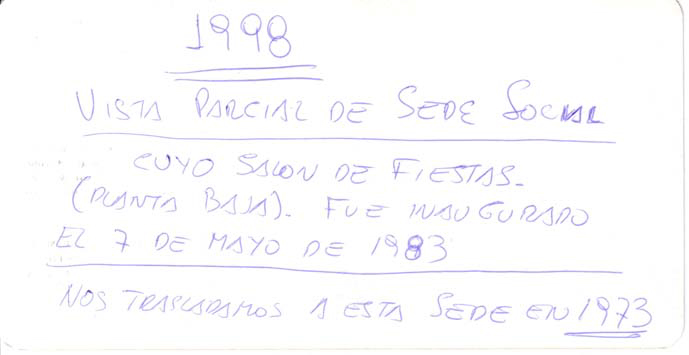 1998
VISTA PARCIAL DE SEDE SOCIAL
CUYO SALON DE FIESTAS.
(PLANTA BAJA). FUE INAUGURADO
EL 7 DE MAYO DE 1983
NOS TRASLADAMOS A ESTA SEDE EN 1973